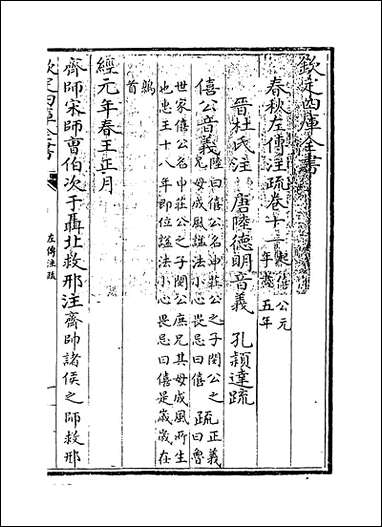 欽定四庫全書
春秋左傳注疏卷十一 起僖公元年盡五年
晉杜氏注 唐陸德明音義 孔穎達疏
僖公音義 陸曰僖公名申莊公之子閔公之兄母成風諡法小心畏忌曰僖 疏 正義曰魯
世家僖公名申莊公之子閔公庶兄其母成風所生
也惠王十八年即位諡法小心畏忌曰僖是歲歲在
鶉首
經元年春王正月
齊師宋師曹伯次于聶北救邢注齊帥諸侯之師救邢
欽定四庫全書
左傳注疏